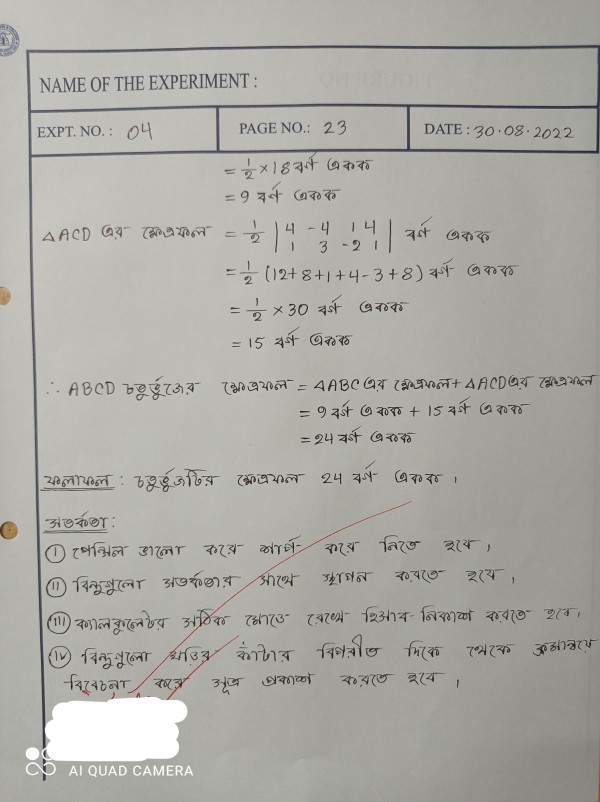 NAME OF THE EXPERIMENT :
EXPT. NO. : 04 PAGE NO.: 23 DATE : 30.08.2022
= 1/2 × 18 বর্গ একক
= 9 বর্গ একক
△ACD এর ক্ষেত্রফল = 1/2 | 4 -4 1 4 | বর্গ একক
1 3 -2 1
= 1/2 (12+8+1+4-3+8) বর্গ একক
= 1/2 × 30 বর্গ একক
= 15 বর্গ একক
∴ ABCD চতুর্ভুজের ক্ষেত্রফল = △ABC এর ক্ষেত্রফল + △ACD এর ক্ষেত্রফল
= 9 বর্গ একক + 15 বর্গ একক
= 24 বর্গ একক
ফলাফল : চতুর্ভুজটির ক্ষেত্রফল 24 বর্গ একক ।
সতর্কতা :
(i) পেন্সিল ভালো করে শার্প করে নিতে হবে ।
(ii) বিন্দুগুলো সতর্কতার সাথে স্থাপন করতে হবে ।
(iii) ক্যালকুলেটর সঠিক মোডে রেখে হিসাব-নিকাশ করতে হবে ।
(iv) বিন্দুগুলো ঘড়ির কাঁটার বিপরীত দিকে থেকে ক্রমান্বয়ে
বিবেচনা করে সূত্র প্রকাশ করতে হবে ।
AI QUAD CAMERA